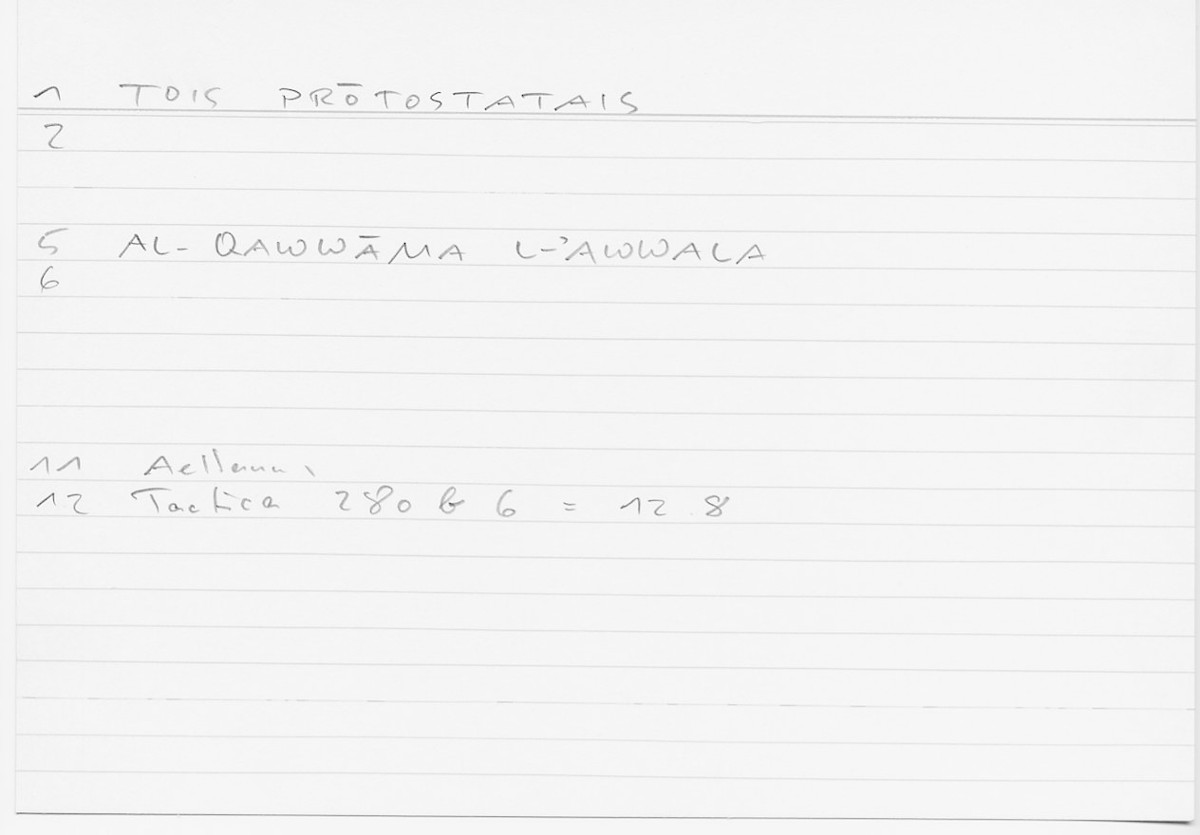 1 TOIS PRŌTOSTATAIS
2
5 AL-QAWWĀMA L-ʾAWWALA
6
11 Aelianus
12 Tactica 280 b 6 = 12.8